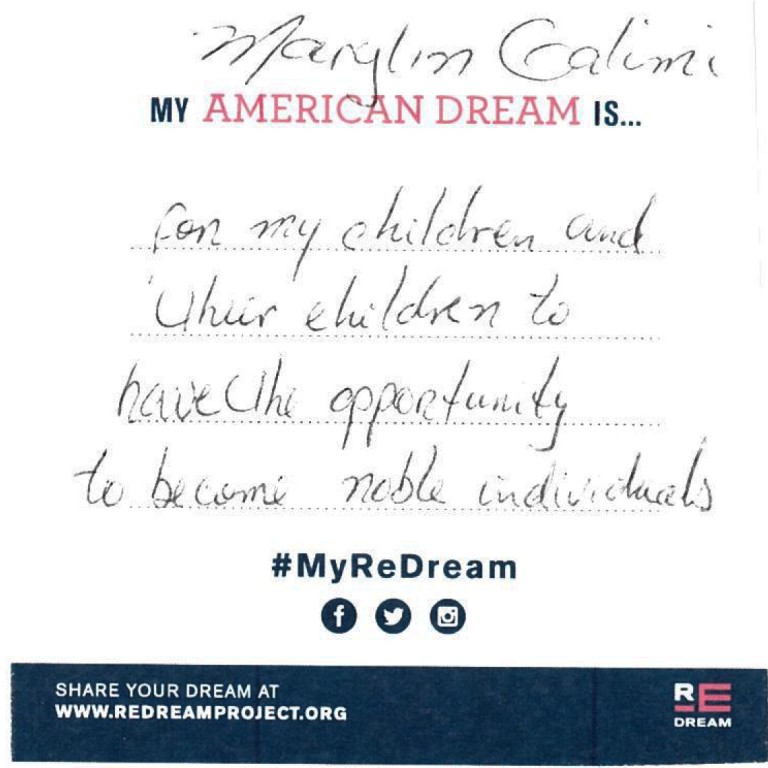 Marylin Galimi
MY AMERICAN DREAM IS...
for my children and
their children to
have the opportunity
to become noble individuals
#MyReDream
SHARE YOUR DREAM AT
WWW.REDREAMPROJECT.ORG
RE
DREAM